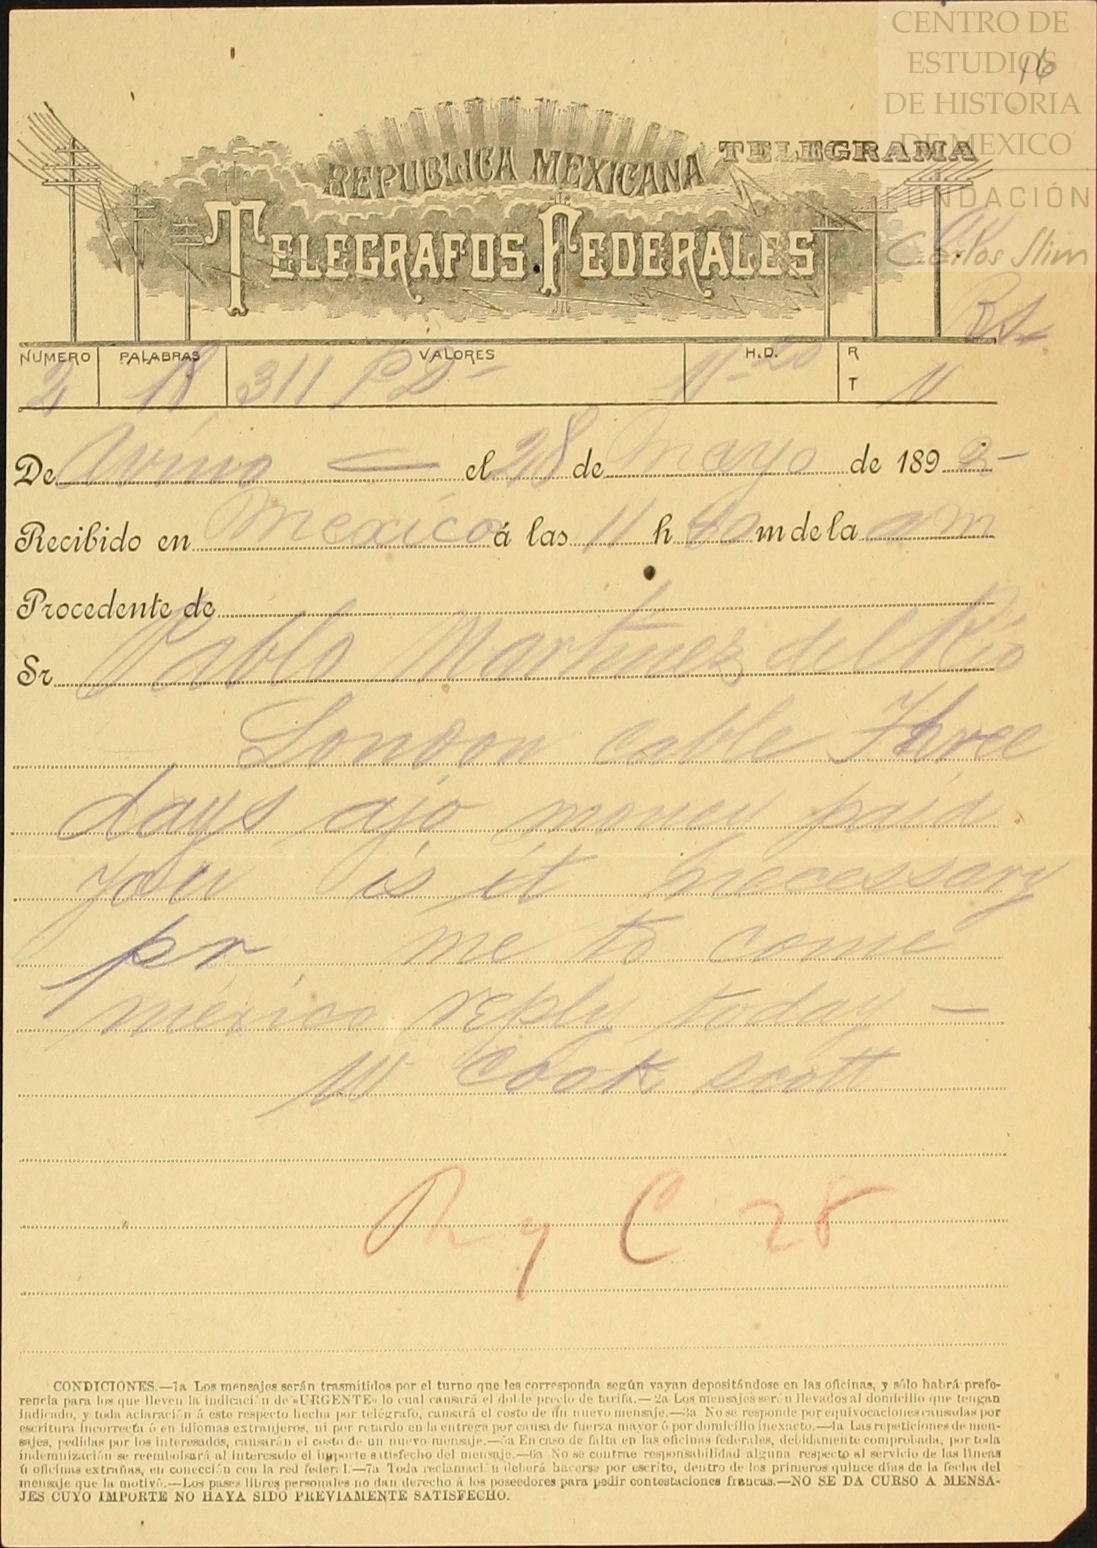 CENTRO DE
ESTUDIOS
DE HISTORIA
DE MEXICO
FUNDACIÓN
Carlos Slim
16
REPUBLICA MEXICANA
TELEGRAMA
TELEGRAFOS FEDERALES
Rs
NUMERO PALABRAS VALORES H.D. R
T
2 18 311 PD- 11-20 11
De Avino el 28 de Mayo de 1893-
Recibido en Mexico á las 11 h m de la am
Procedente de
Sr Pablo Martinez del Rio
London cable Three
days ajo money paid
you is it necessary
pr me to come
mexico reply today -
W Cook Scott
R y C 28
CONDICIONES.—1a Los mensajes serán trasmitidos por el turno que les corresponda según vayan depositándose en las oficinas, y sólo habrá prefe-
rencia para los que lleven la indicación de «URGENTE» lo cual causará el doble precio de tarifa.—2a Los mensajes serán llevados al domicilio que tengan
indicado, y toda aclaración á este respecto hecha por telégrafo, causará el costo de un nuevo mensaje.—3a No se responde por equivocaciones causadas por
escritura incorrecta ó en idiomas extranjeros, ni por retardo en la entrega por causa de fuerza mayor ó por domicilio inexacto.—4a Las repeticiones de men-
sajes, pedidas por los interesados, causarán el costo de un nuevo mensaje.—5a En caso de falta en las oficinas federales, debidamente comprobada, por toda
indemnización se reembolsará al interesado el importe satisfecho del mensaje.—6a No se contrae responsabilidad alguna respecto al servicio de las líneas
ú oficinas extrañas, en conección con la red federal.—7a Toda reclamación deberá hacerse por escrito, dentro de los primeros quince días de la fecha del
mensaje que la motivó.—Los pases libres personales no dan derecho á los poseedores para pedir contestaciones francas.—NO SE DA CURSO A MENSA-
JES CUYO IMPORTE NO HAYA SIDO PREVIAMENTE SATISFECHO.